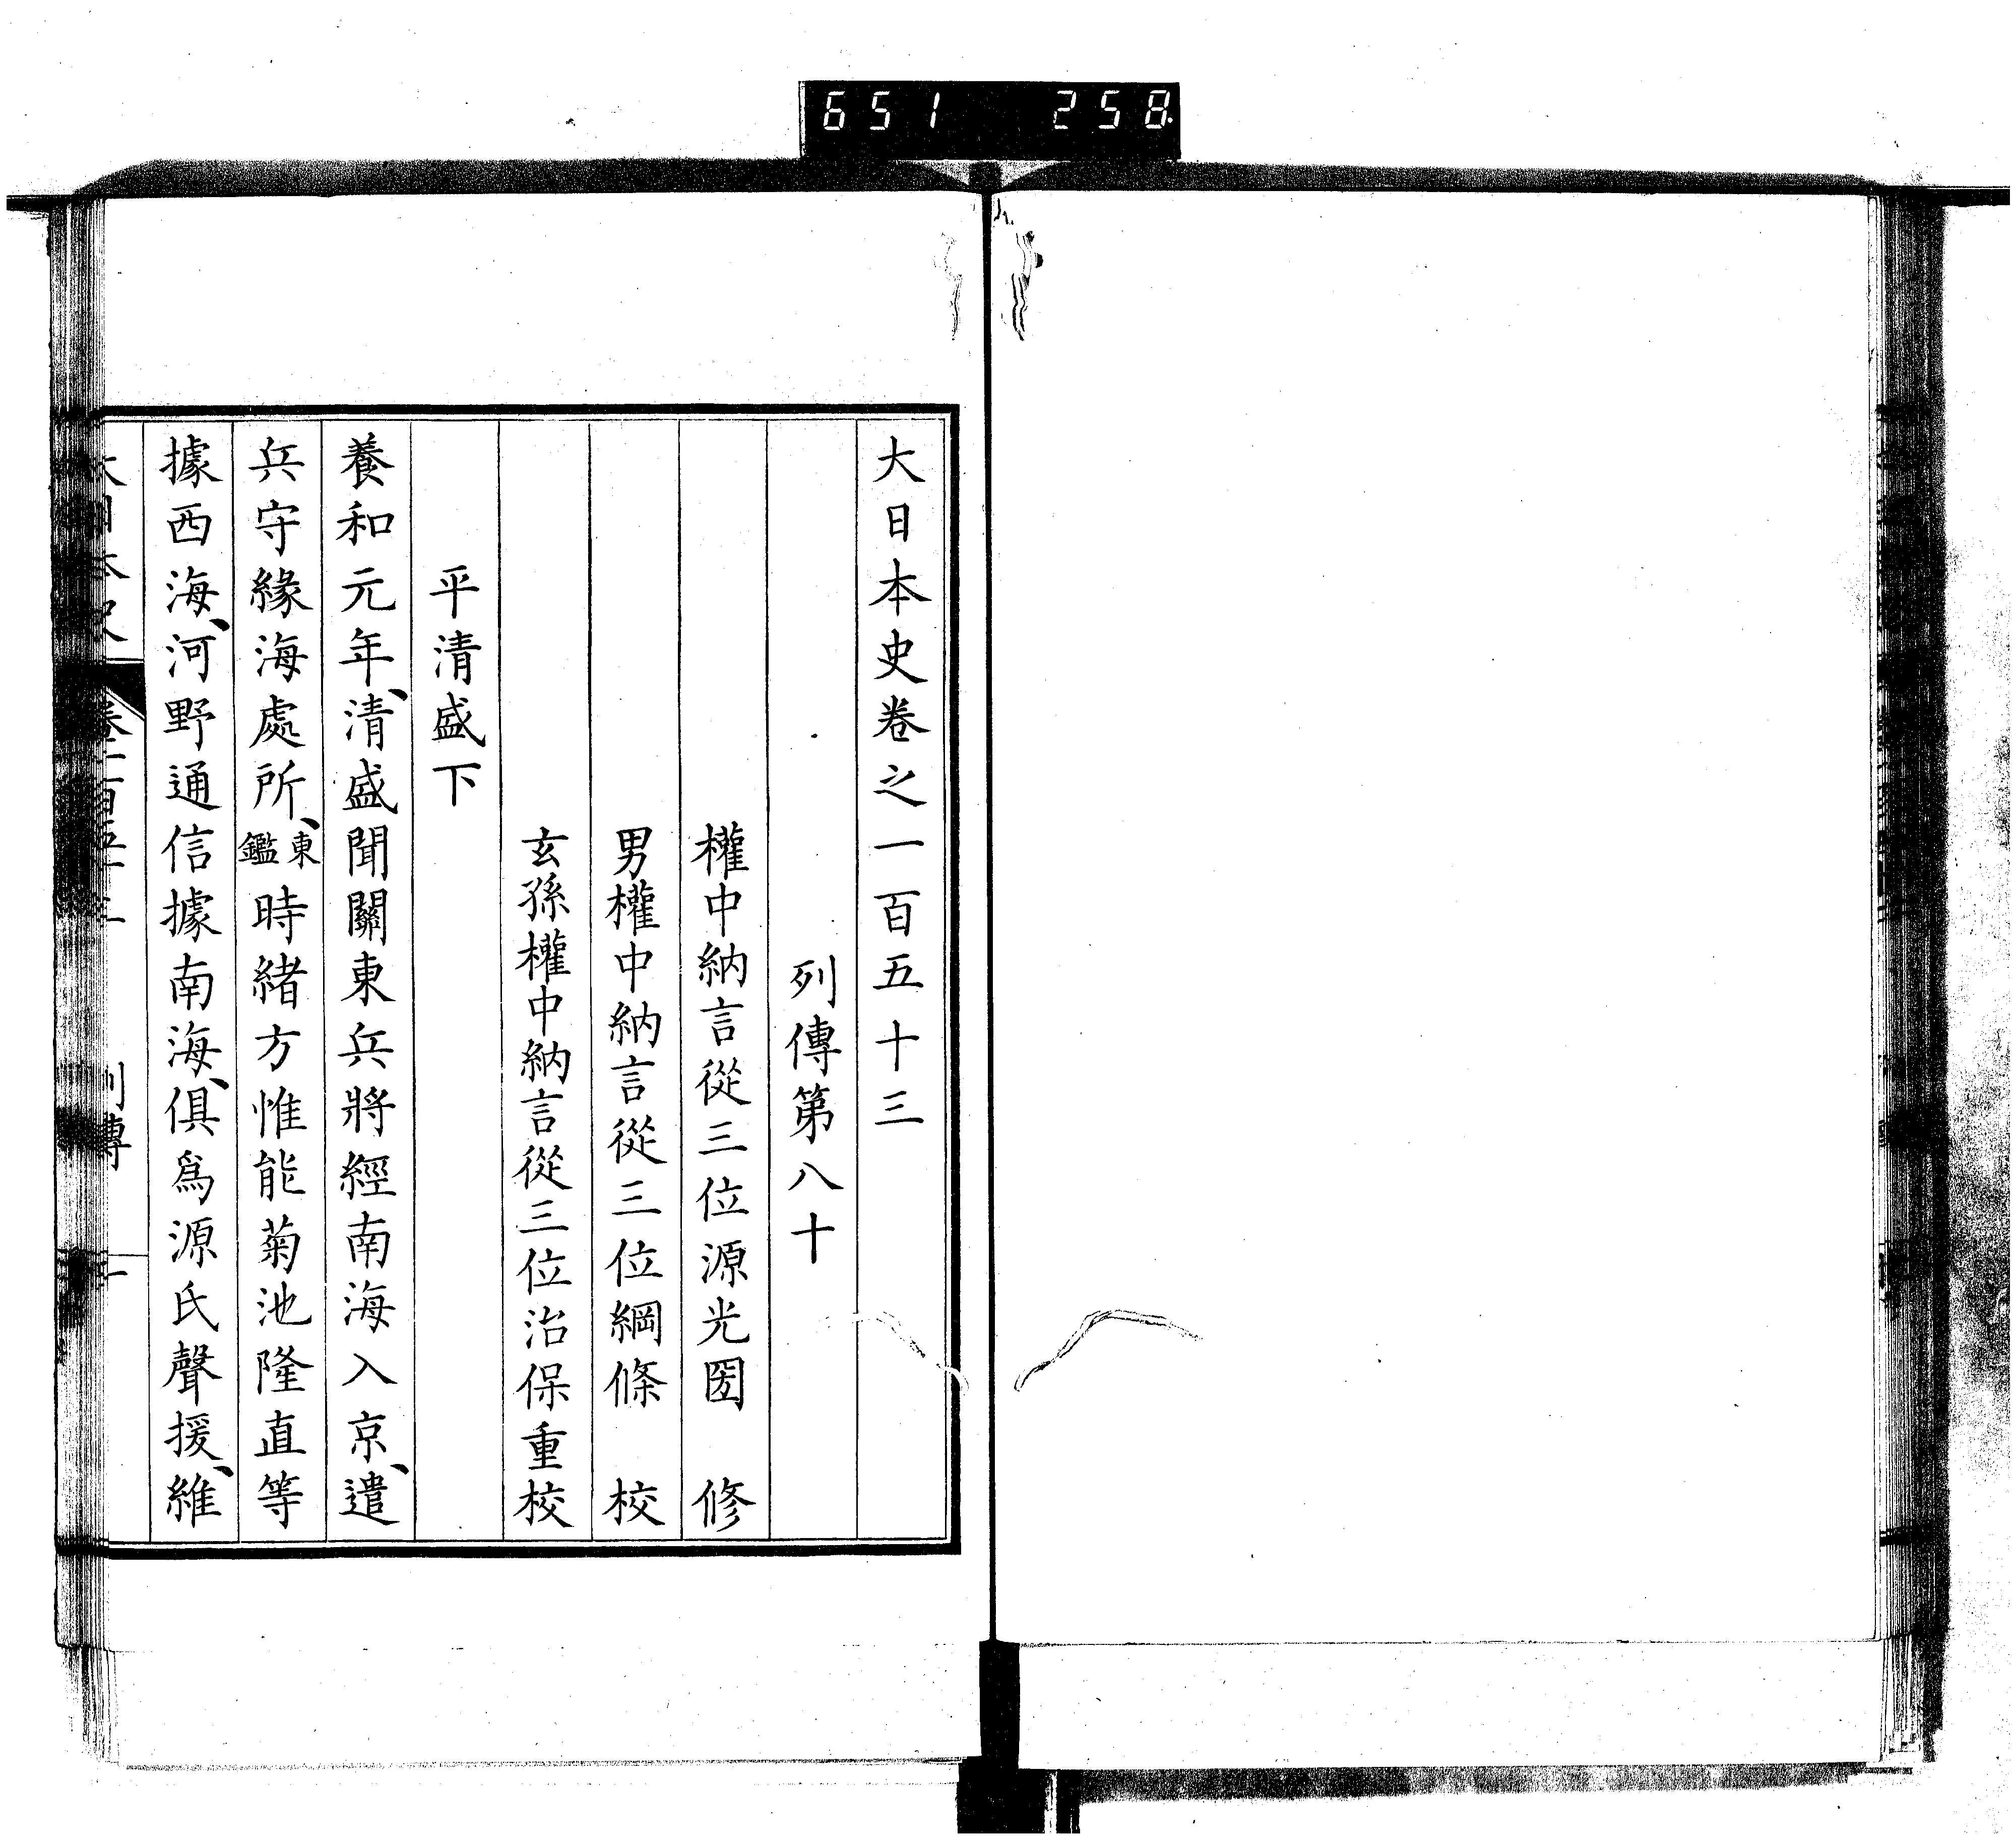 651 258
大日本史卷之一百五十三
列傳第八十
權中納言從三位源光圀 修
男權中納言從三位綱條 校
玄孫權中納言從三位治保重校
平清盛下
養和元年、清盛聞關東兵將經南海入京、遣
兵守緣海處所、東鑑時緒方惟能菊池隆直等
據西海、河野通信據南海、俱爲源氏聲援、維